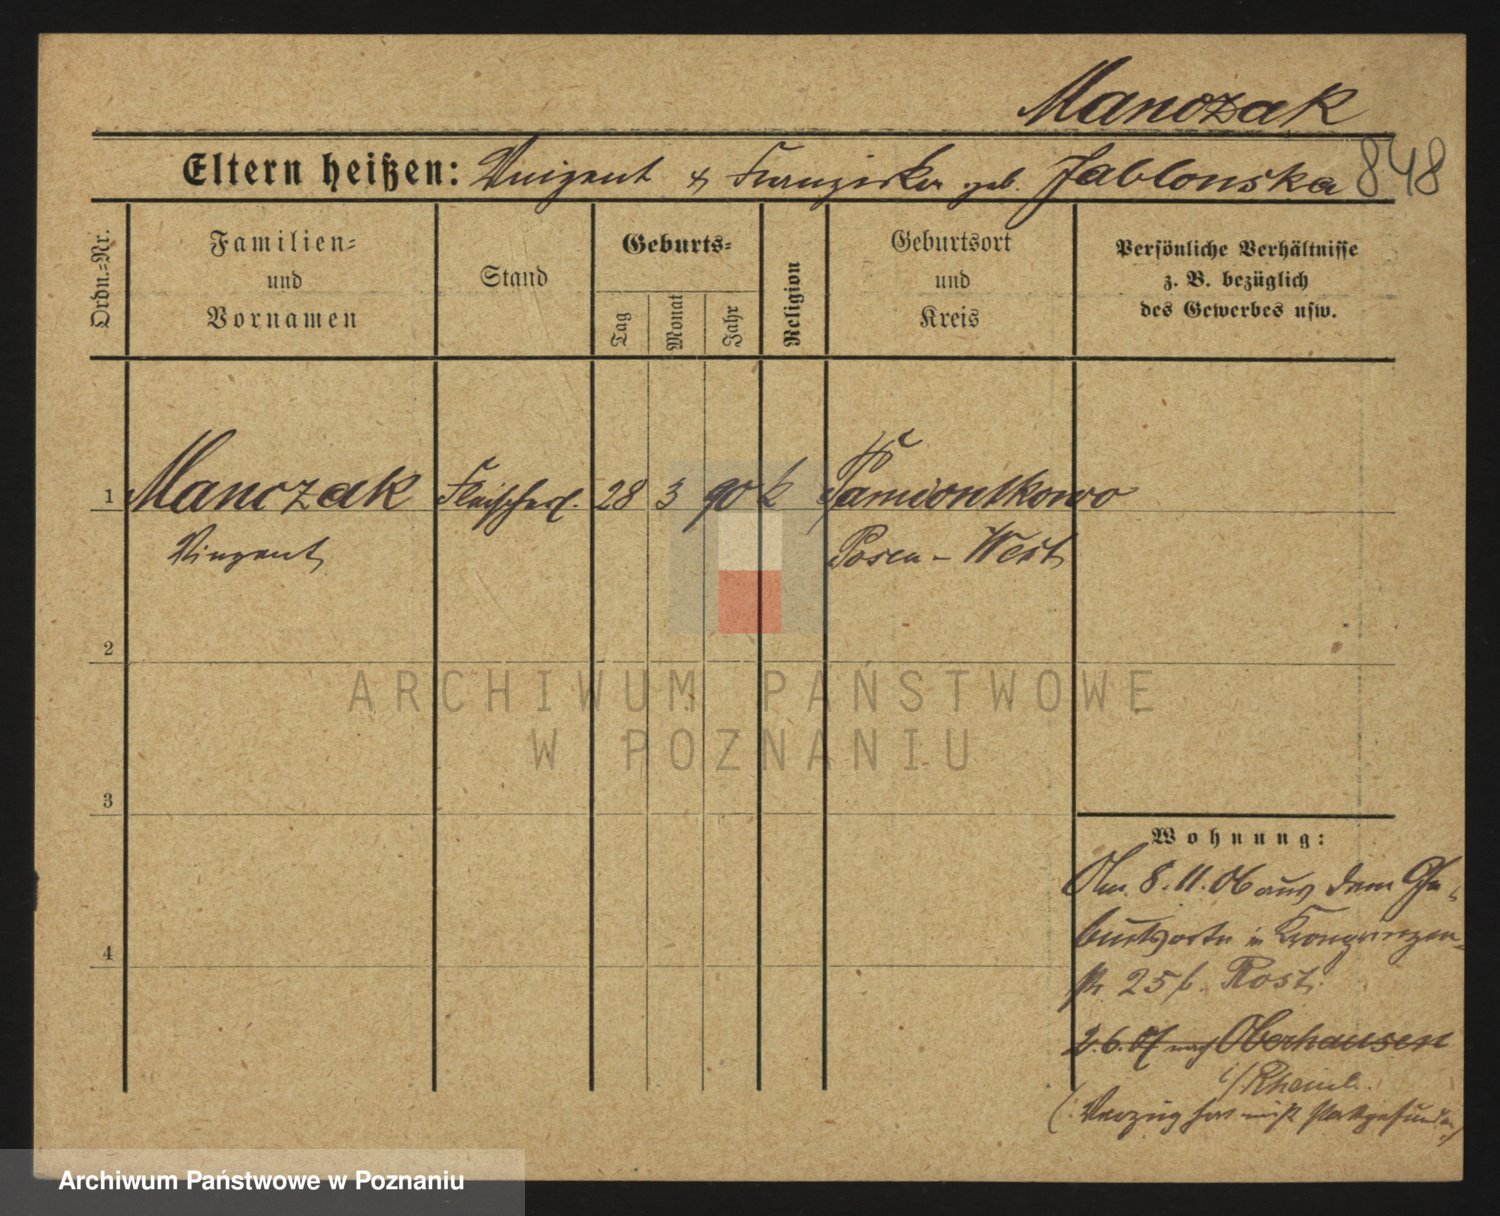 Manczak
848
Eltern heißen: Vinzent & Franziska geb. Jablonska
Ordn.-Nr.
Familien-
und
Vornamen
Stand
Geburts-
Tag
Monat
Jahr
Religion
Geburtsort
und
Kreis
Persönliche Verhältnisse
z. B. bezüglich
des Gewerbes usw.
1 Manczak Fleischerl. 28 3 90 k Pamiontkowo
Vinzent Posen-West
2
ARCHIWUM PAŃSTWOWE
W POZNANIU
3
Wohnung:
Am 8.11.06 aus dem Ge-
burtsorte in Kronprinzen-
str. 25 b. Rost.
4
2.6.07 nach Oberhausen
i/Rheinl.
(: Verzug hat nicht stattgefunden)
Archiwum Państwowe w Poznaniu